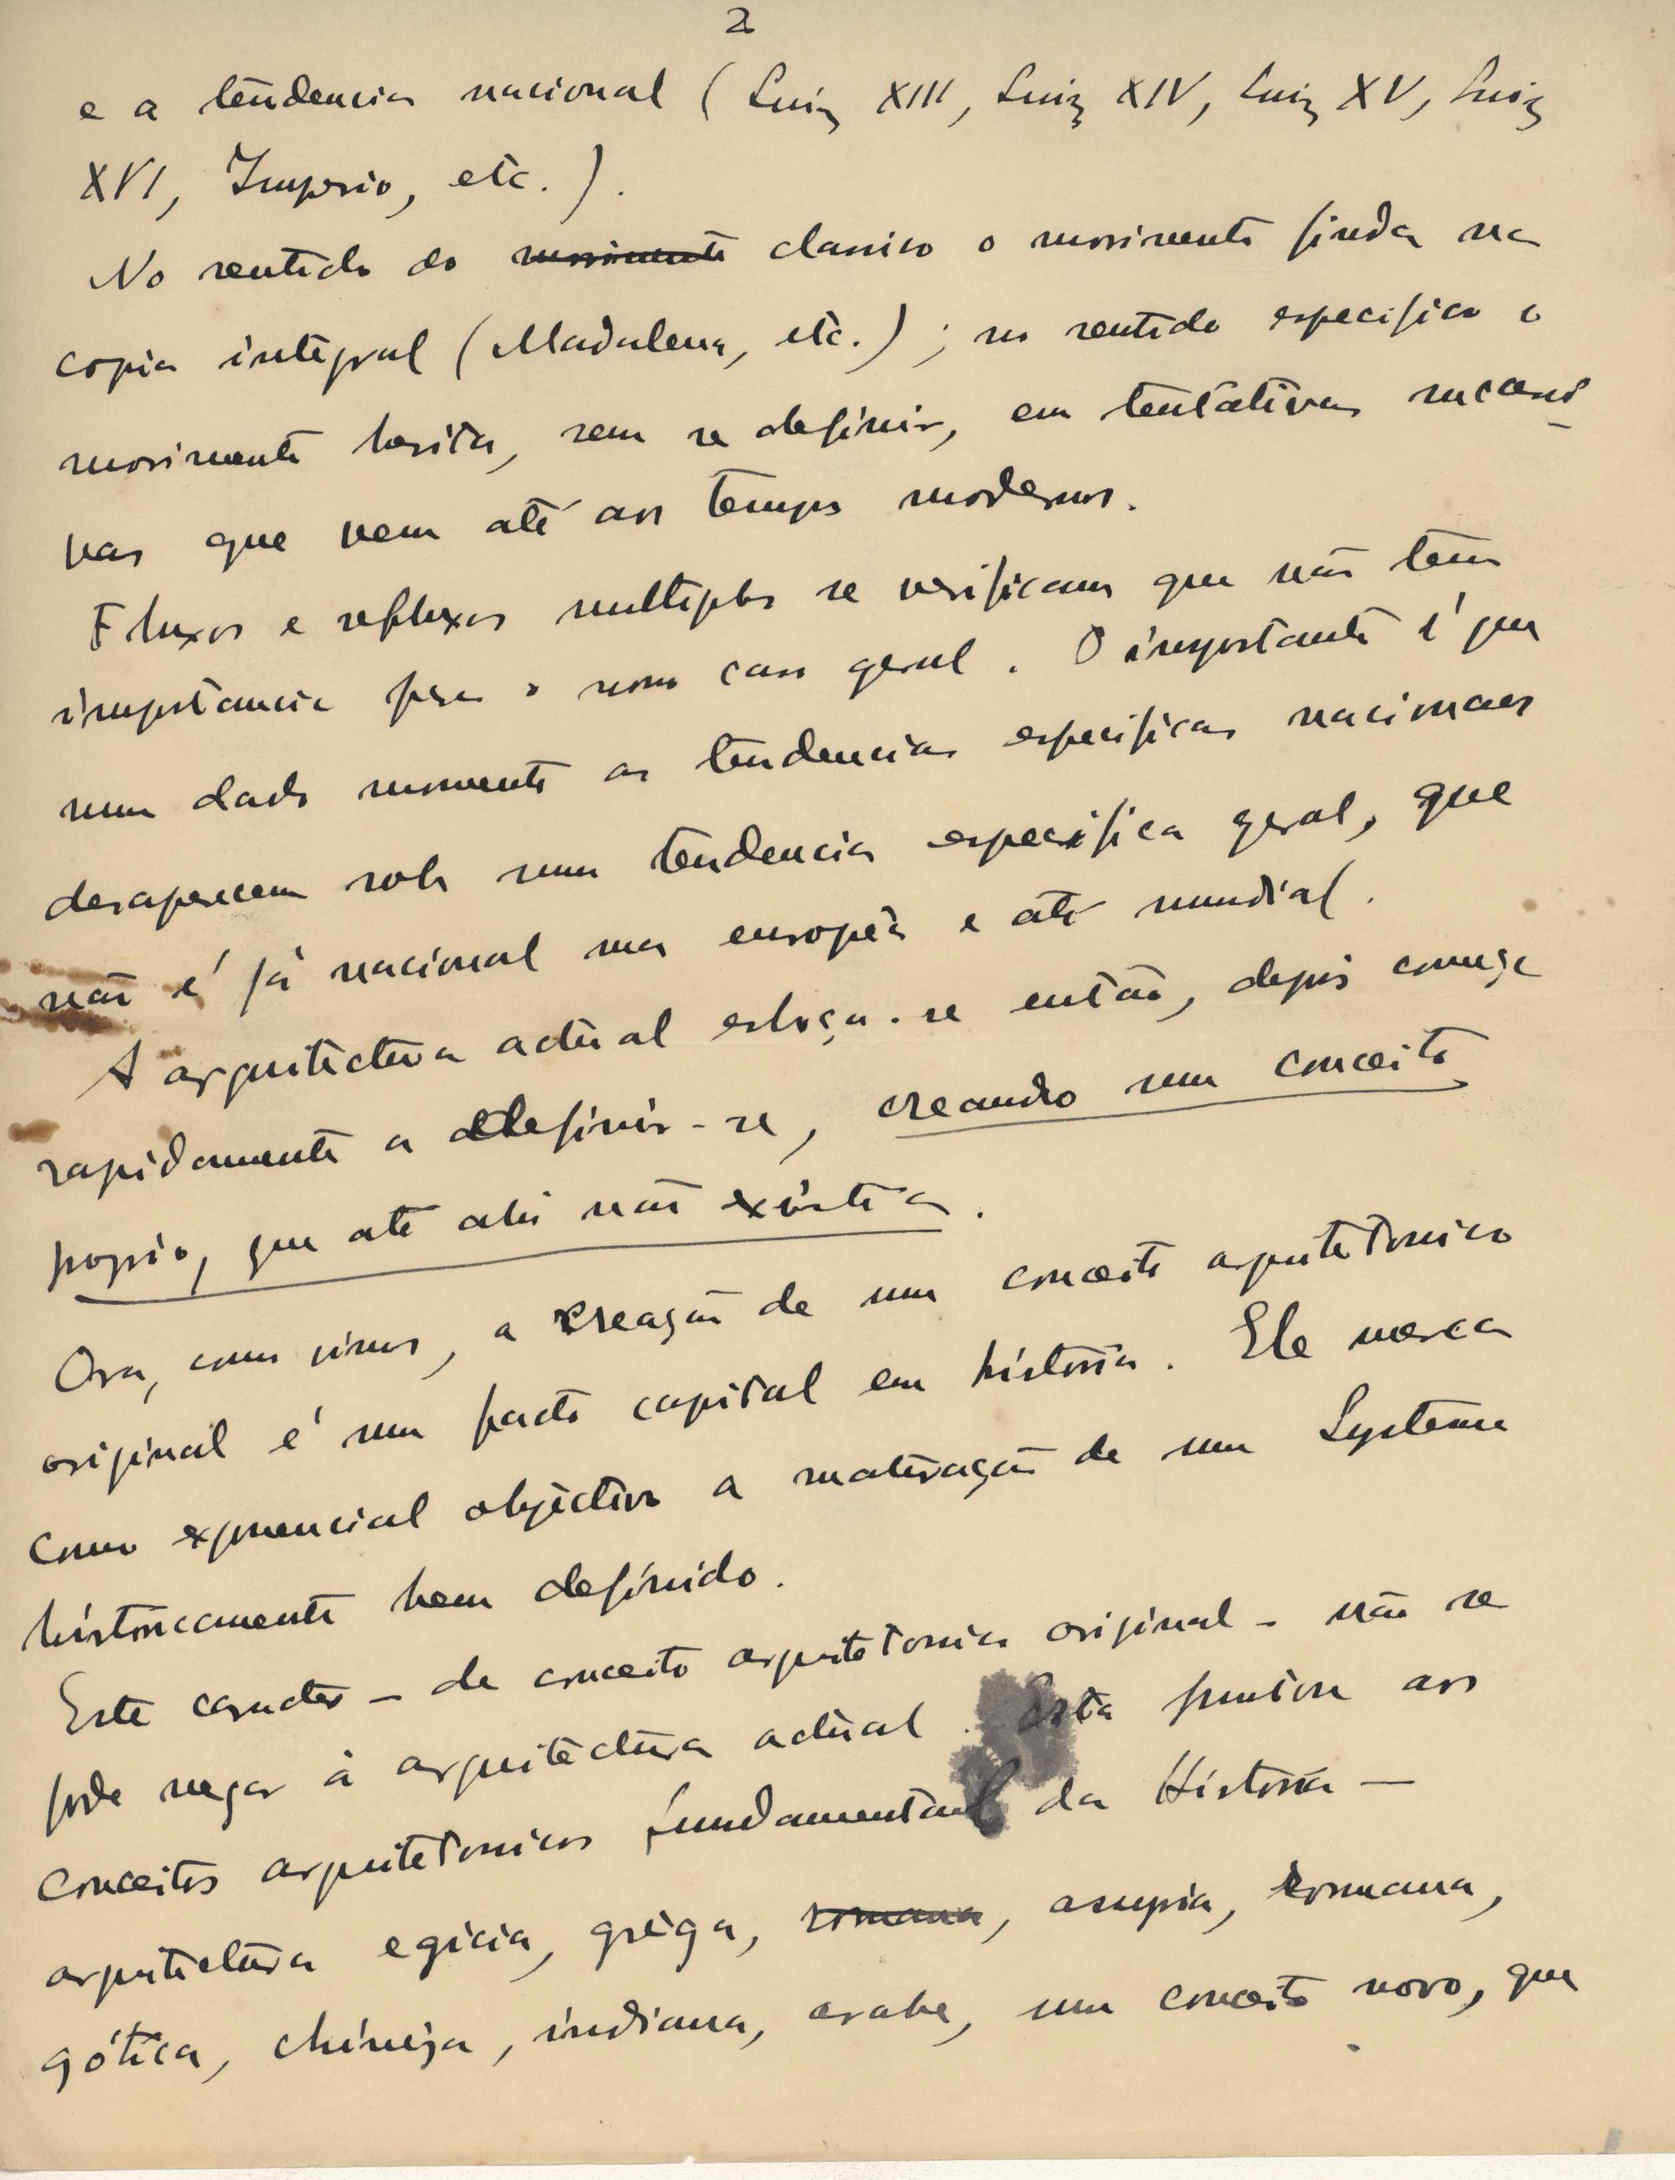 2
e a tendencia nacional (Luiz XIII, Luiz XIV, Luiz XV, Luiz
XVI, Imperio, etc.).
No sentido do movimento classico o movimento finda na
copia integral (Madalena, etc.); no sentido especifico o
movimento hesita, sem se definir, em tentativas sucessi-
vas que vem até aos tempos modernos.
Fluxos e refluxos multiplos se verificam que não têm
importancia para o nosso caso geral. O importante é que
num dado momento as tendencias especificas nacionaes
desaparecem sob uma tendencia especifica geral, que
não é já nacional mas europêa e até mundial.
A arquitectura actual esboça-se então, depois começa
rapidamente a definir-se, creando um conceito
proprio, que até ahi não existia.
Ora, como vimos, a creação de um conceito arquitetonico
original é um facto capital em história. Ele marca
como exponencial objectivo a maturação de um Systema
historicamente bem definido.
Este caracter - de conceito arquitetonico original - não se
pode negar à arquitectura actual. Esta juntou aos
conceitos arquitetonicos fundamentaes da História -
arquitectura egicia, grêga, romana, assyria, romana,
gótica, chineza, indiana, arabe, um conceito novo, que